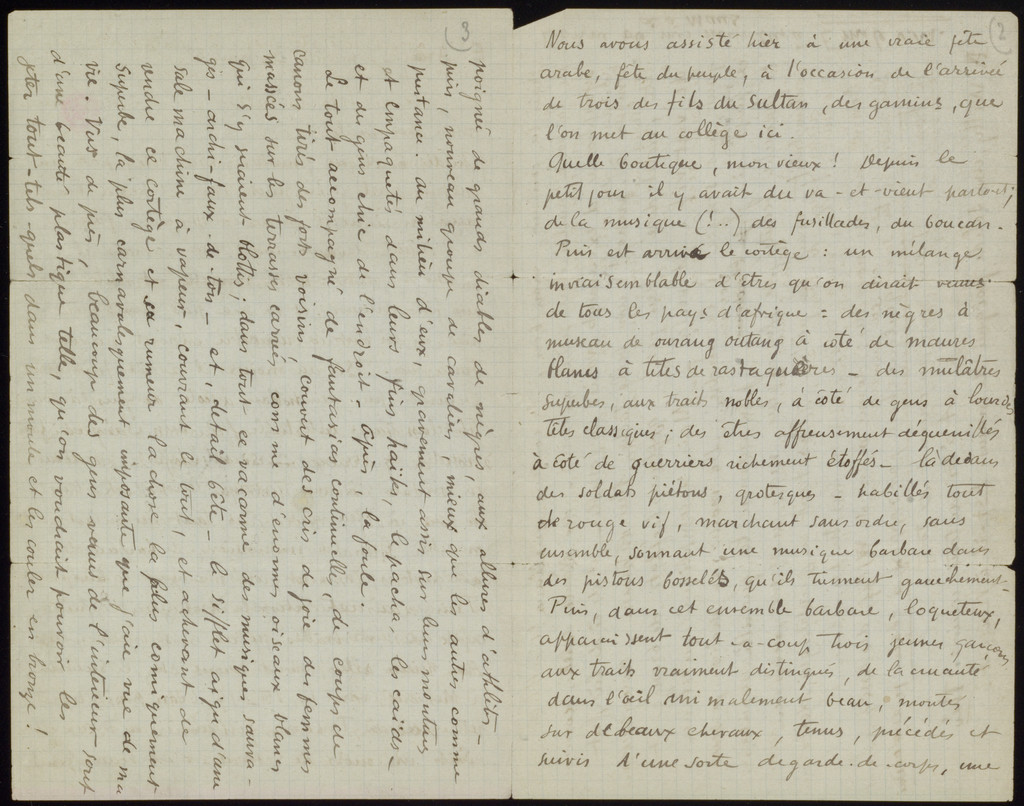 (2
Nous avons assisté hier à une vraie fête
arabe, fête du peuple, à l'occasion de l'arrivée
de trois des fils du Sultan, des gamins, que
l'on met au collège ici.
Quelle boutique, mon vieux ! Depuis le
petit jour il y avait du va-et-vient partout;
de la musique (!..) des fusillades, du boucan.
Puis est arrivé le cortège : un mélange
invraisemblable d'êtres qu'on dirait venus
de tous les pays d'afrique : des nègres à
museau de ourang outang à côté de maures
blancs à têtes de rastaquères - des mulâtres
superbes, aux traits nobles, à côté de gens à lourdes
têtes classiques; des êtres affreusement déguenillés
à côté de guerriers richement étoffés - là dedans
des soldats piétons, grotesques - habillés tout
de rouge vif, marchant sans ordre, sans
ensemble, sonnant une musique barbare dans
des pistons bosselés, qu'ils tiennent gauchement -
Puis, dans cet ensemble barbare, loqueteux,
apparaissent tout-a-coup trois jeunes garçons
aux traits vraiment distingués, de la cruauté
dans l'œil animalement beau, montés
sur de beaux chevaux, tenus, précédés et
suivis d'une sorte de garde-de-corps, une
3)
poignée de grands diables de nègres, aux allures d'athlètes -
puis, nouveau groupe de cavaliers, mieux que les autres comme
prestance. Au milieu d'eux, gravement assis sur leurs montures
et empaquetés dans leurs fins haïks, le pacha, les caïds -
et des gens chic de l'endroit. Après, la foule.
Le tout accompagné de fantasias continuelles, de coups de
canons tirés des forts voisins, couvert des cris de joie des femmes
massées sur les terrasses carrées comme d'énormes oiseaux blancs
qui s'y seraient blottis; dans tout ce vacarme des musiques sauva-
ges - archi-faux-de-ton - et, détail bête - le sifflet aigu d'une
sale machine à vapeur, couvrant le tout, et achevant de
rendre ce cortège et sa rumeur la chose la plus comiquement
superbe, la plus carnavalesquement imposante que j'aie vue de ma
vie. Vus de près, beaucoup des gens venus de l'intérieur sont
d'une beauté plastique telle, qu'on voudrait pouvoir les
jeter tout-tels-quels dans un moule et les couler en bronze !